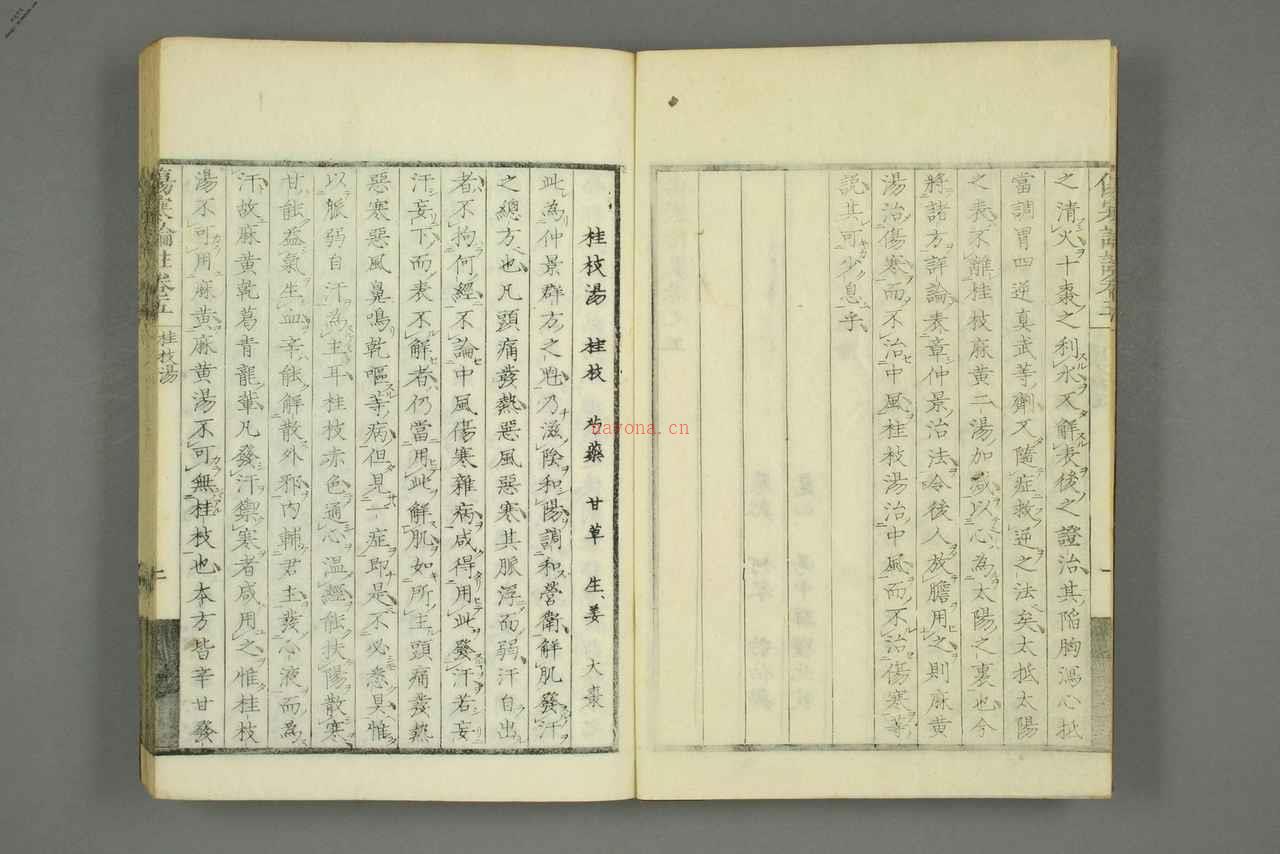 之清火十棗之利水又解表後之證治其陷胸瀉心抵
當調胃四逆真武等劑又隨症救逆之法矣太抵太陽
之表不離桂枝麻黄二湯加減以心為太陽之裏也今
將諸方詳論表章仲景治法令後人放膽用之則麻黄
湯治傷寒而不治中風桂枝湯治中風而不治傷寒等
説其可少息乎
桂枝湯 桂枝 芍藥 甘草 生姜 大棗
此為仲景群方之魁乃滋陰和陽調和營衛解肌發汗
之總方也凡頭痛發熱惡風惡寒其脈浮而弱汗自出
者不拘何經不論中風傷寒雜病咸得用此發汗若妄
汗妄下而表不解者仍當用此解肌如所主頭痛發熱
惡寒惡風鼻鳴乾嘔等病但見一症即是不必悉具惟
以脈弱自汗為主耳桂枝赤色通心溫經能扶陽散寒
甘能益氣生血辛能解散外邪内輔君主發心液而為
汗故麻黄乾葛青龍輩凡發汗禦寒者咸用之惟桂枝
湯不可用麻黄麻黄湯不可無桂枝也本方皆辛甘發
傷寒論註卷五 桂枝湯
nayona.cn